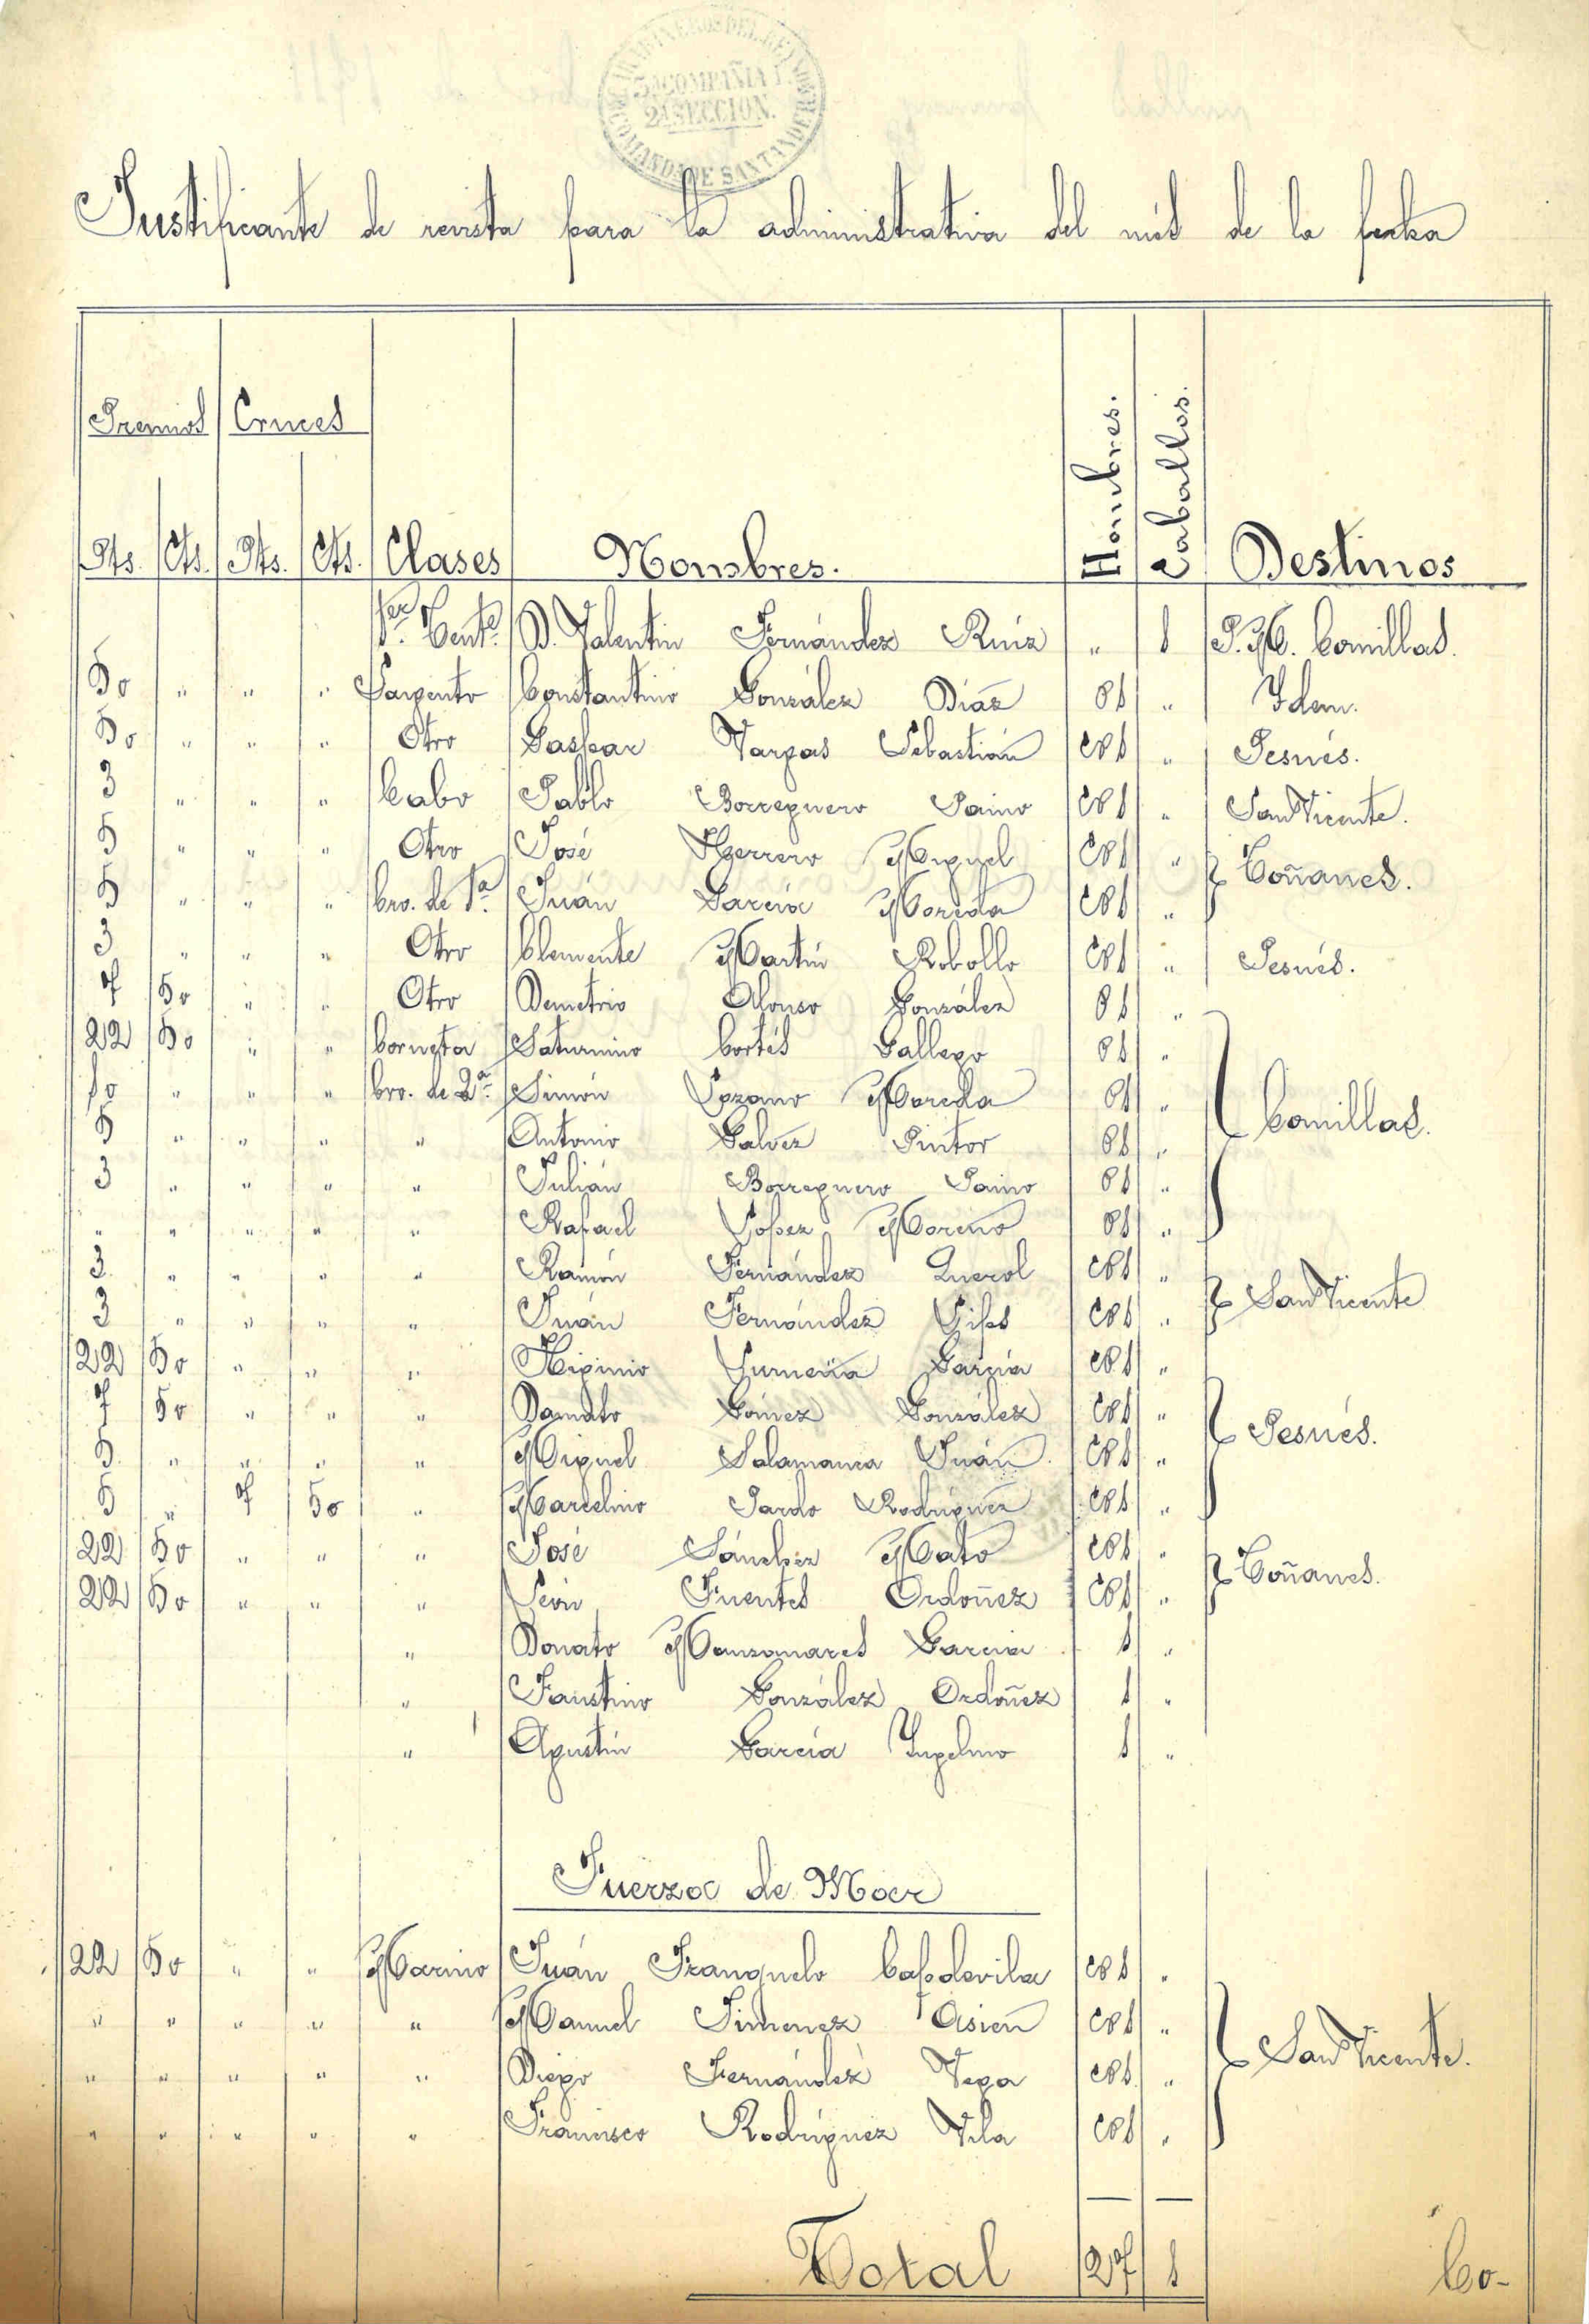 CARABINEROS DEL REINO
5ª COMPAÑIA
2ª SECCION.
COMANDA DE SANTANDER
Justificante de revista para la administrativa del més de la fecha
Premios Cruces
Pts. Cts. Pts. Cts. Clases Nombres. Hombres. Caballos. Destinos
1er. Tente. D. Valentin Fernández Ruiz " 1 P. M. Comillas.
50 " " " Sargento Constantino González Diáz 1 " Idem.
50 " " " Otro Gaspar Vargas Sebastián 1 " Pesués.
3 " " " Cabo Pablo Borreguero Paino 1 " San Vicente.
5 " " " Otro José Herrero Miguel 1 " Toñanes.
5 " " " Cro. de 1ª Juán García Moreda 1 "
3 " " " Otro Clemente Martin Robollo 1 " Pesués.
7 50 " " Otro Demetrio Alonso González 1 "
22 50 " " Corneta Saturnino Cortés Gallego 1 "
10 " " " Cro. de 2ª Simón Lozano Moreda 1 " Comillas.
5 " " " " Antonio Galvez Pintor 1 "
3 " " " " Julián Borreguero Paino 1 "
" " " " " Rafael Lopez Moreno 1 "
3 " " " " Ramón Fernández Querol 1 " San Vicente
3 " " " " Juán Fernández Gifes 1 "
22 50 " " " Higinio García 1 "
7 50 " " " Donato Gómez González 1 " Pesués.
5 " " " " Miguel Salamanca Juán. 1 "
5 " 7 50 " Marcelino Pardo Rodríguez 1 "
22 50 " " " José Sánchez Mato 1 " Toñanes.
22 50 " " " León Fuentes Ordoñez 1 "
" Donato Manzanares Garcia 1 "
" Faustino González Ordoñez 1 "
" Agustín García Yugelmo 1 "
Fuerza de Mar
22 50 " " Marino Juán Franquelo Capdevila 1 "
" " " " " Manuel Jimenez Asien 1 " San Vicente.
" " " " " Diego Fernández Vega 1 "
" " " " " Francisco Rodríguez Vila 1 "
Total 27 1
Co-